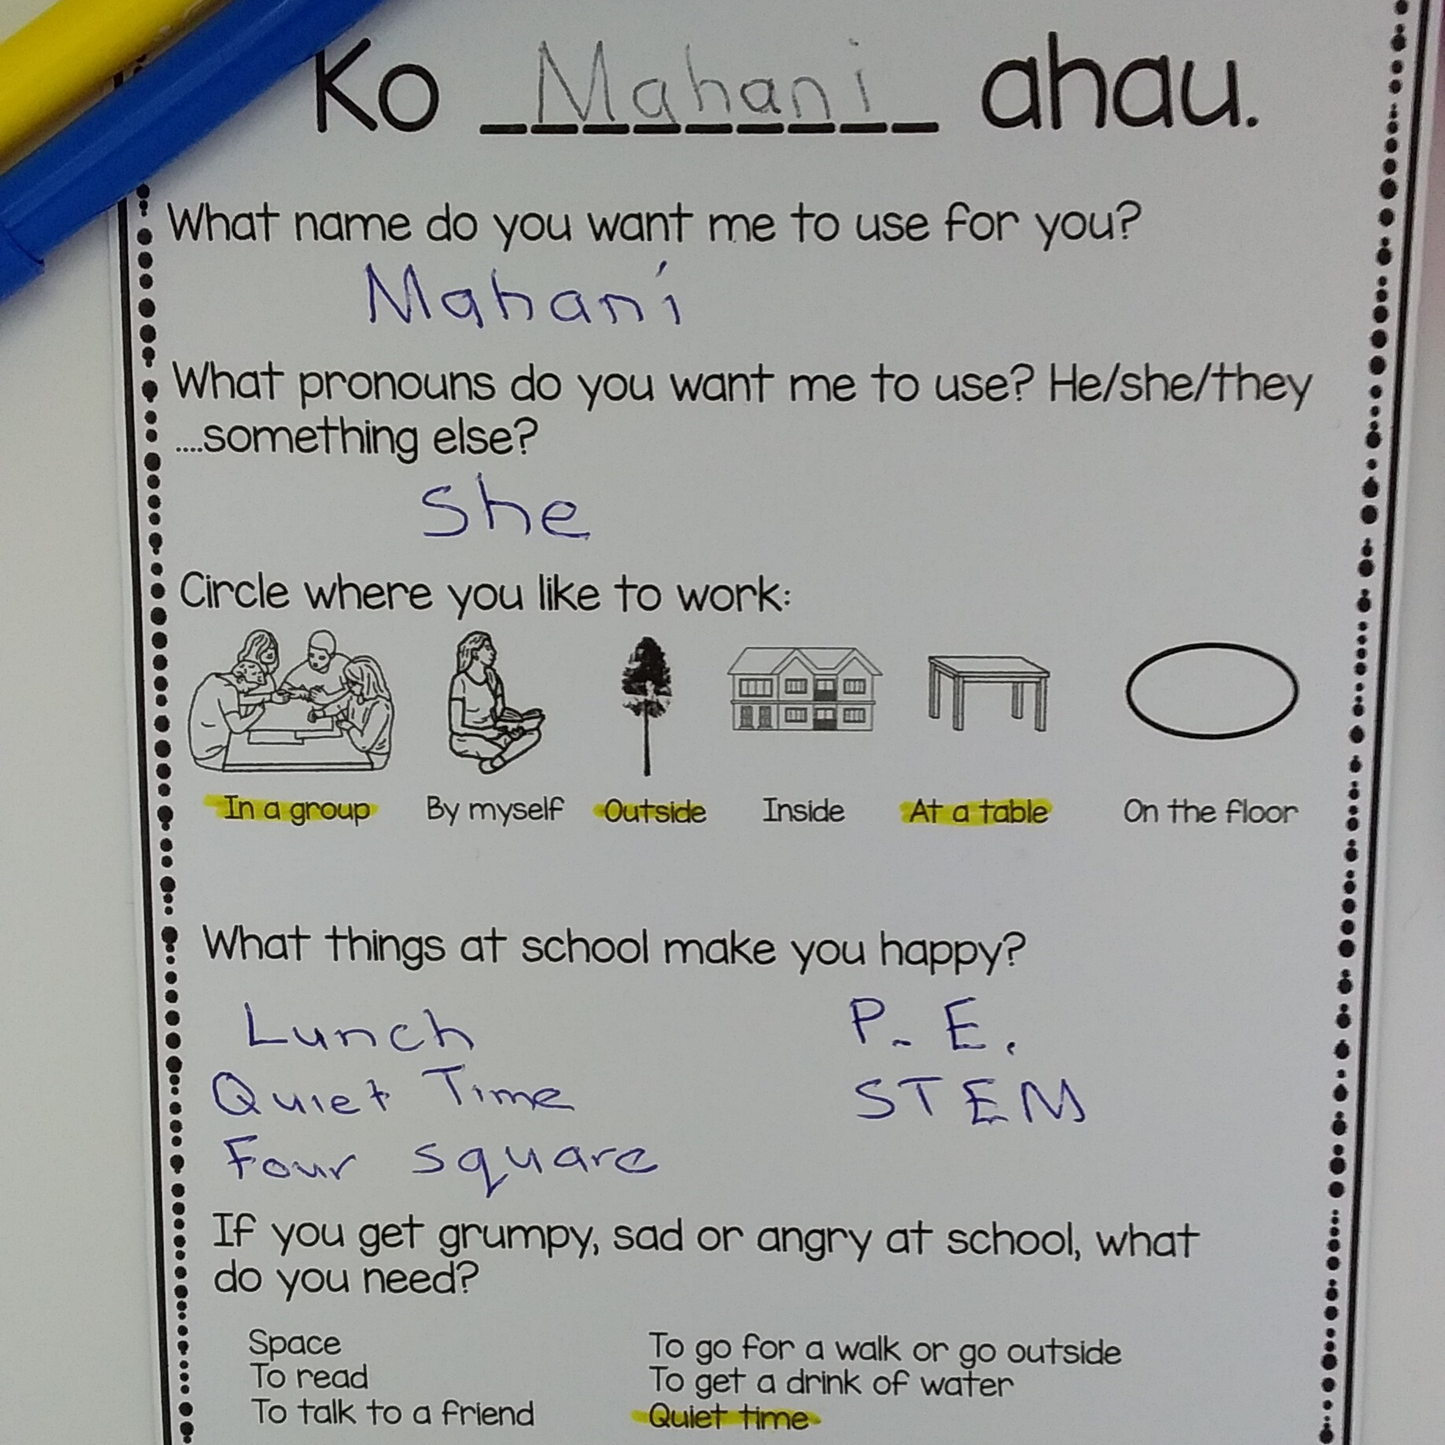 Ko Mahani ahau.
What name do you want me to use for you?
Mahani
What pronouns do you want me to use? He/she/they
....something else?
She
Circle where you like to work:
In a group By myself Outside Inside At a table On the floor
What things at school make you happy?
Lunch P. E.
Quiet Time STEM
Four square
If you get grumpy, sad or angry at school, what
do you need?
Space To go for a walk or go outside
To read To get a drink of water
To talk to a friend Quiet time